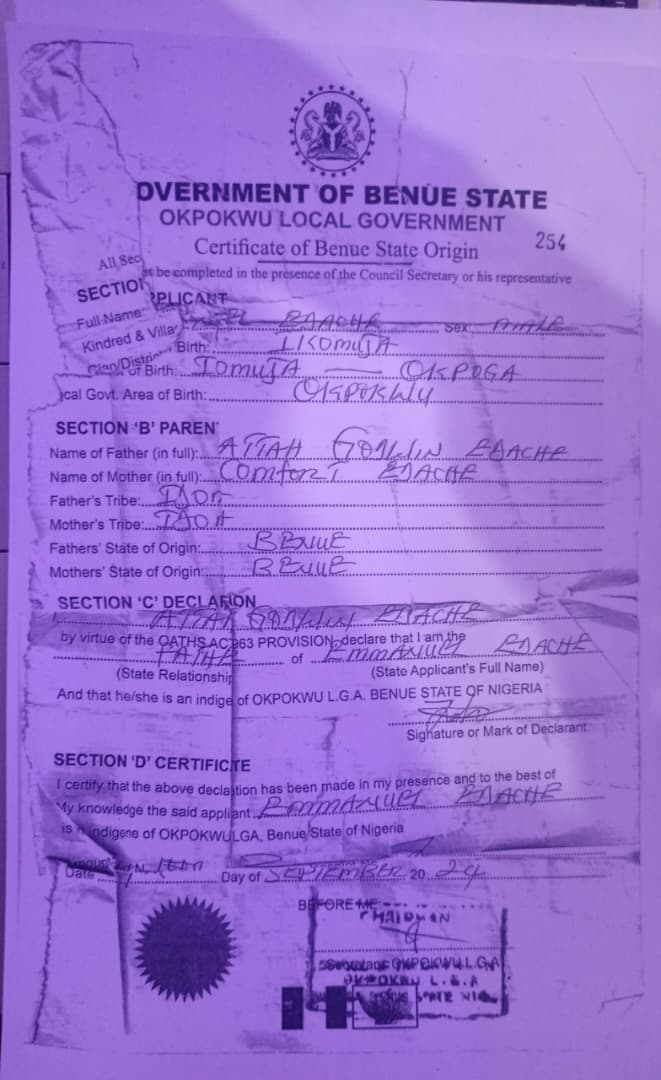 OVERNMENT OF BENUE STATE
OKPOKWU LOCAL GOVERNMENT
Certificate of Benue State Origin 254
All Sec
st be completed in the presence of the Council Secretary or his representative
SECTION PLICANT
Full Name: EDACHE Sex MALE
Kindred & Villa
Birth:
Clan/District of Birth: OKPOGA
cal Govt. Area of Birth: OKPOKWU
SECTION 'B' PAREN
Name of Father (in full): ATTAH GODWIN EDACHE
Name of Mother (in full): COMFORT EDACHE
Father's Tribe: IDOMA
Mother's Tribe:
Fathers' State of Origin: BENUE
Mothers' State of Origin: BENUE
SECTION 'C' DECLARION
I, ATTAH GODWIN EDACHE
by virtue of the OATHS AC 963 PROVISION declare that I am the
FATHER of EMMANUEL EDACHE
(State Relationship (State Applicant's Full Name)
And that he/she is an indige of OKPOKWU L.G.A. BENUE STATE OF NIGERIA
Signature or Mark of Declarant
SECTION 'D' CERTIFICTE
I certify that the above declation has been made in my presence and to the best of
My knowledge the said appliant EMMANUEL EDACHE
is indigene of OKPOKWU LGA, Benue State of Nigeria
Date Day of SEPTEMBER 20 24
BEFORE ME
CHAIRMAN
OKPOKWU L.G.A
OKPOKWU L.G.A
STATE